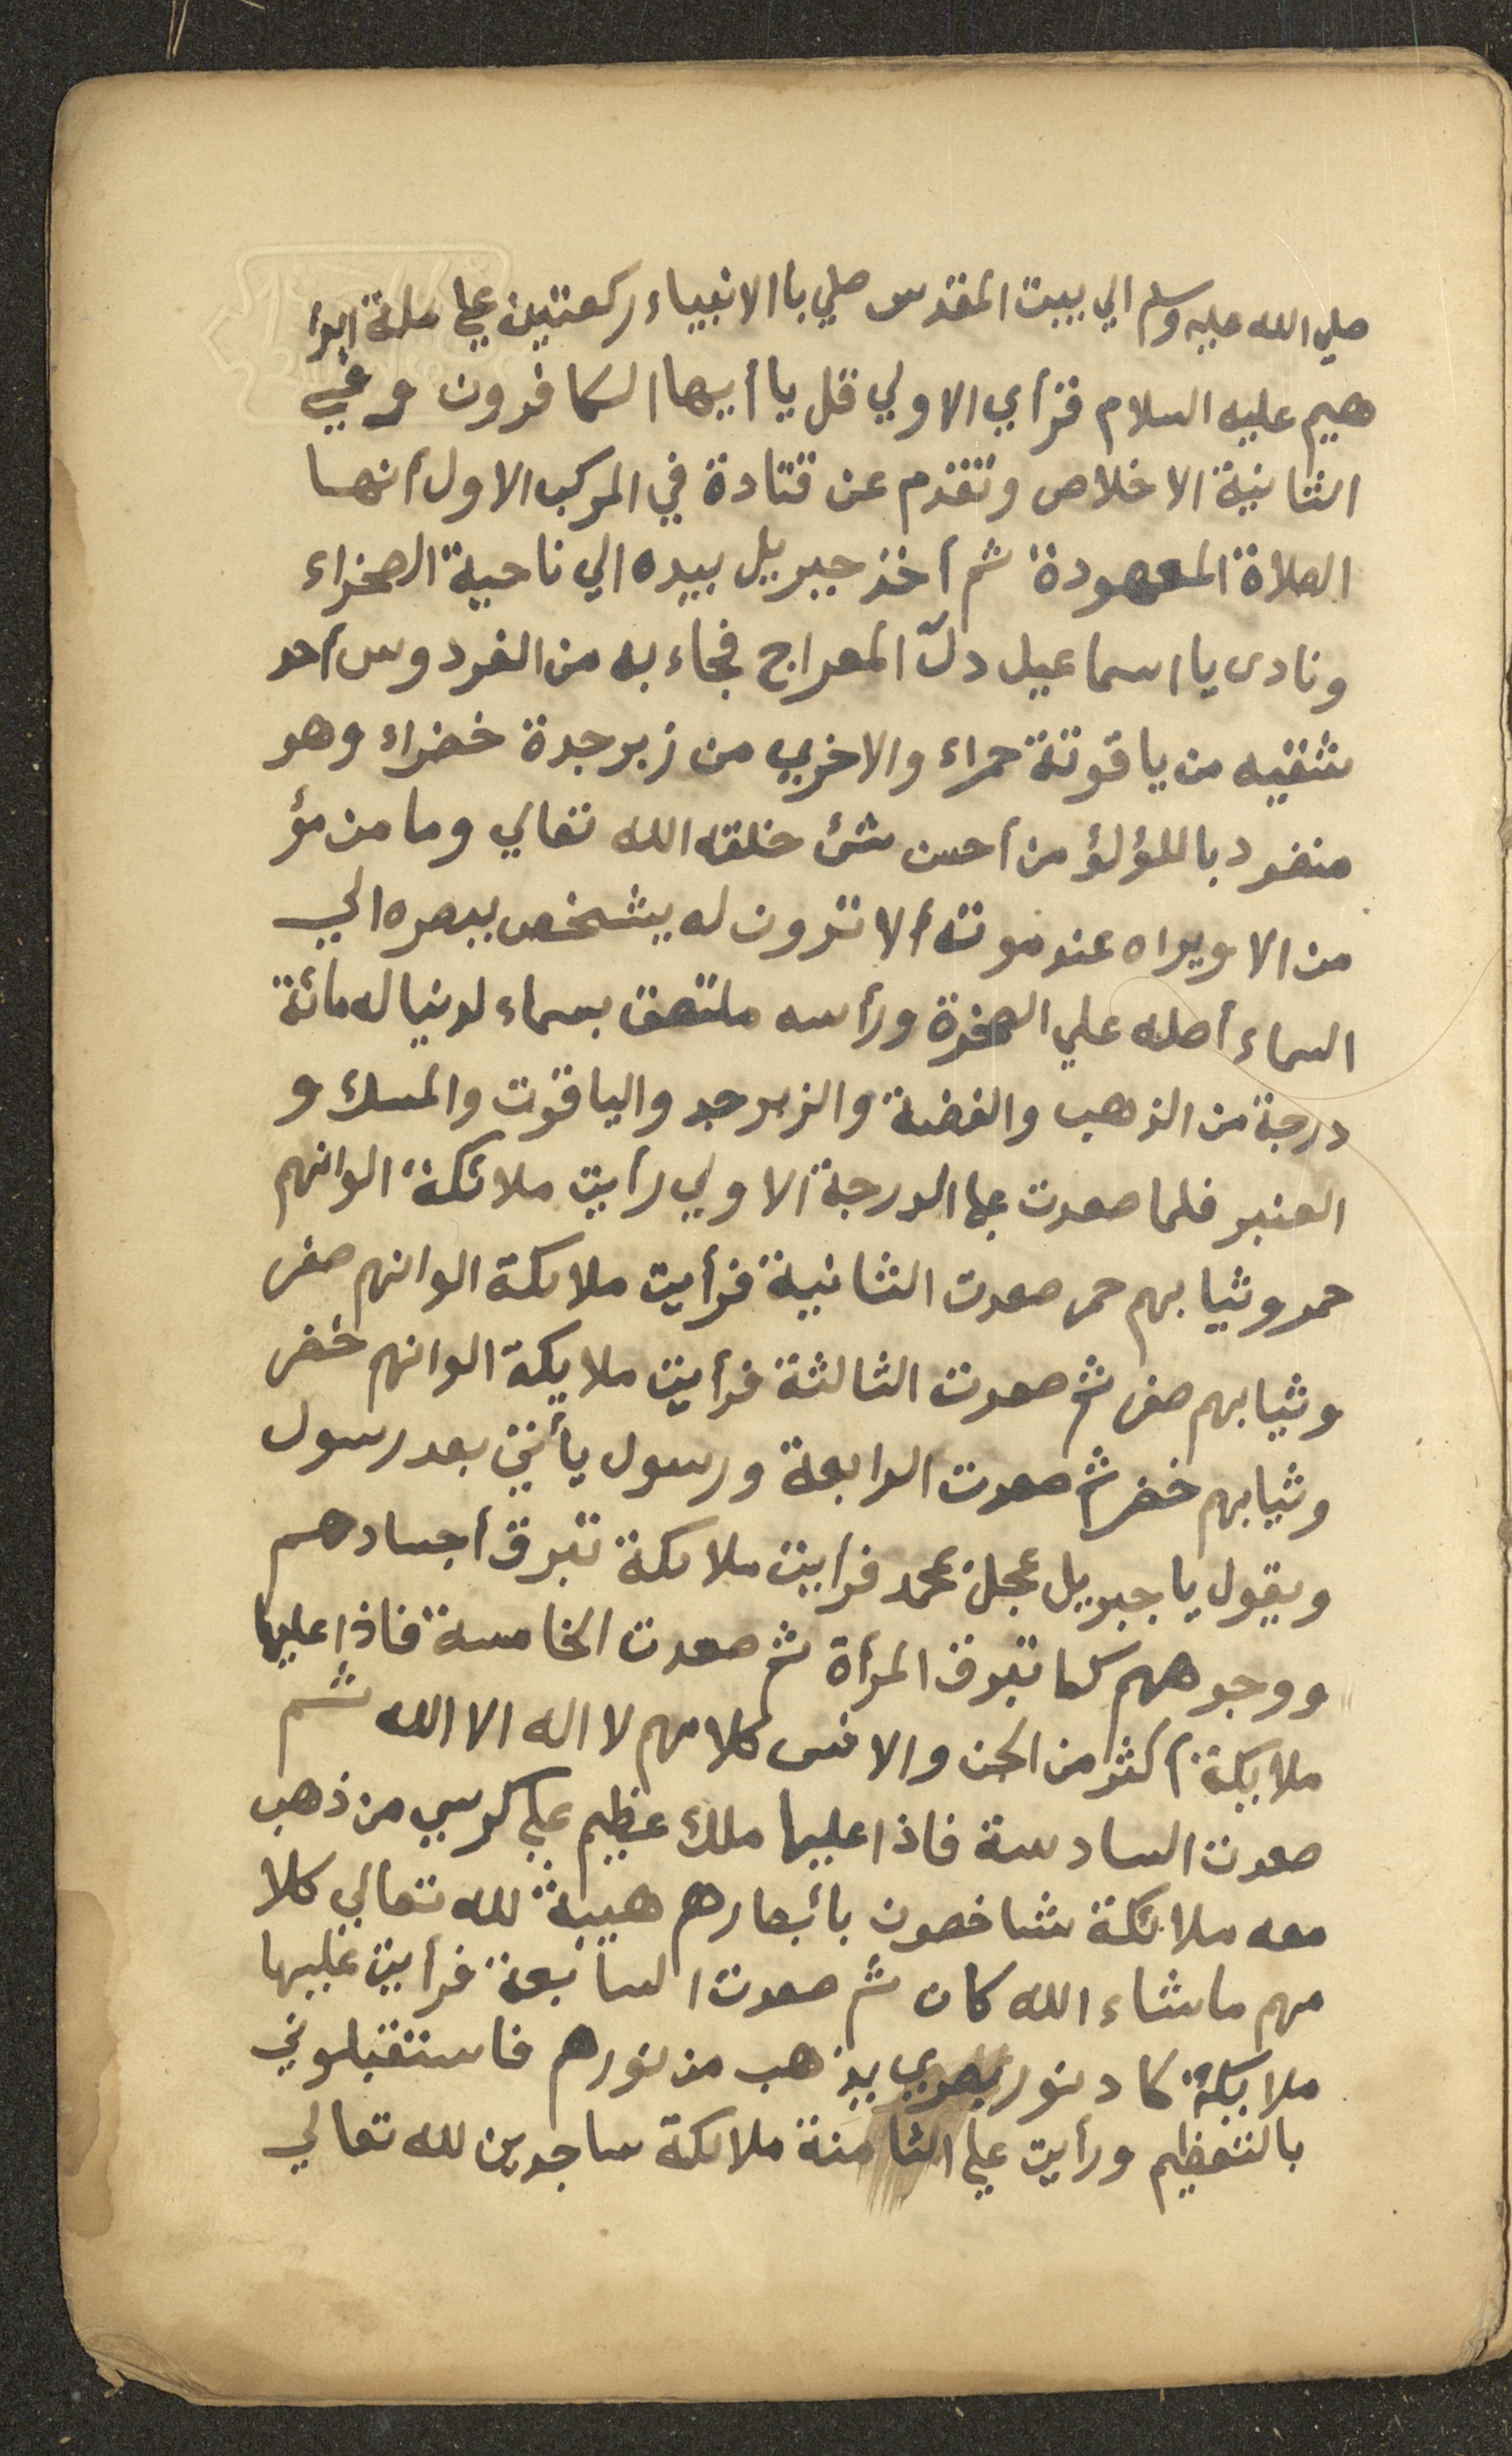 صلي الله عليه وسلم الي بيت المقدس صلي باالانبياء ركعتين علي ملة ابرا
هيم عليه السلام قرأ في الاولي قل ياأيها الكافرون وفي
الثانية الاخلاص وتقدم عن قتادة في المركب الاول أنها
الصلاة المعهودة ثم أخذ جبريل بيده الي ناحية الصخراء
ونادى يا اسماعيل دلّ المعراج فجاء به من الفردوس أحد
شقيه من ياقوتة حمراء والاخري من زبرجدة خضراء وهو
منضود باللؤلؤ من أحسن شئ خلقه الله تعالي وما من مؤ
من الا ويراه عند موته ألا ترون له يشخص ببصره الي
السماء أصله علي الصخرة ورأسه ملتصق بسماء لدنيا له مائة
درجة من الذهب والفضة والزبرجد والياقوت والمسك و
العنبر فلما صعدت علي الدرجة الاولي رأيت ملائكة الوانهم
حمر وثيابهم حمر صعدت الثانية فرأيت ملائكة الوانهم صفر
وثيابهم صفر ثم صعدت الثالثة فرأيت ملايكة الوانهم خضر
وثيابهم خضر ثم صعدت الرابعة ورسول يأتي بعد رسول
ويقول يا جبريل عجل بمحمد فرأيت ملائكة تبرق أجسادهم
ووجوههم كما تبرق المرأة ثم صعدت الخامسة فاذا عليها
ملايكة أكثر من الجن والانس كلامهم لا اله الا الله ثم
صعدت السادسة فاذا عليها ملك عظيم علي كرسي من ذهب
معه ملائكة شاخصون بأبصارهم هيبة لله تعالي كلا
مهم ما شاء الله كان ثم صعدت السابعة فرأيت عليها
ملايكة كاد نور بصري يذهب من نورهم فاستقبلوني
بالتعظيم ورأيت علي الثامنة ملائكة ساجدين لله تعالي